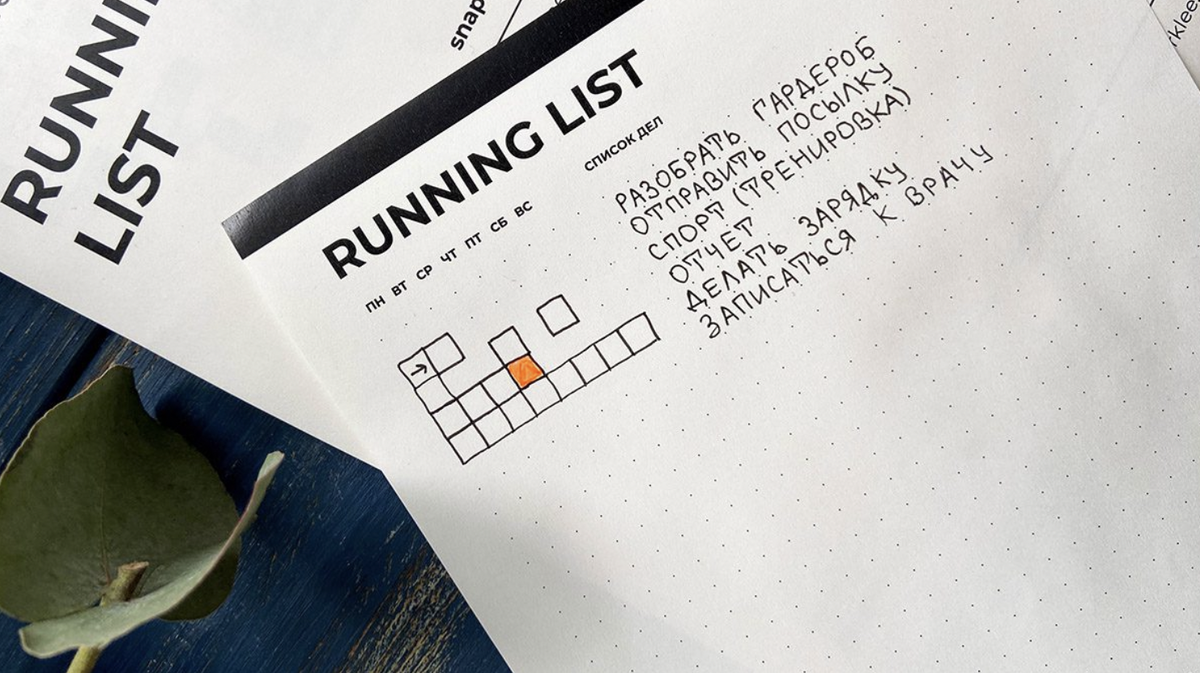 RUNNING LIST
snap
RUNNING LIST
СПИСОК ДЕЛ
ПН ВТ СР ЧТ ПТ СБ ВС
РАЗОБРАТЬ ГАРДЕРОБ
ОТПРАВИТЬ ПОСЫЛКУ
СПОРТ (ТРЕНИРОВКА)
ОТЧЕТ
ДЕЛАТЬ ЗАРЯДКУ
ЗАПИСАТЬСЯ К ВРАЧУ